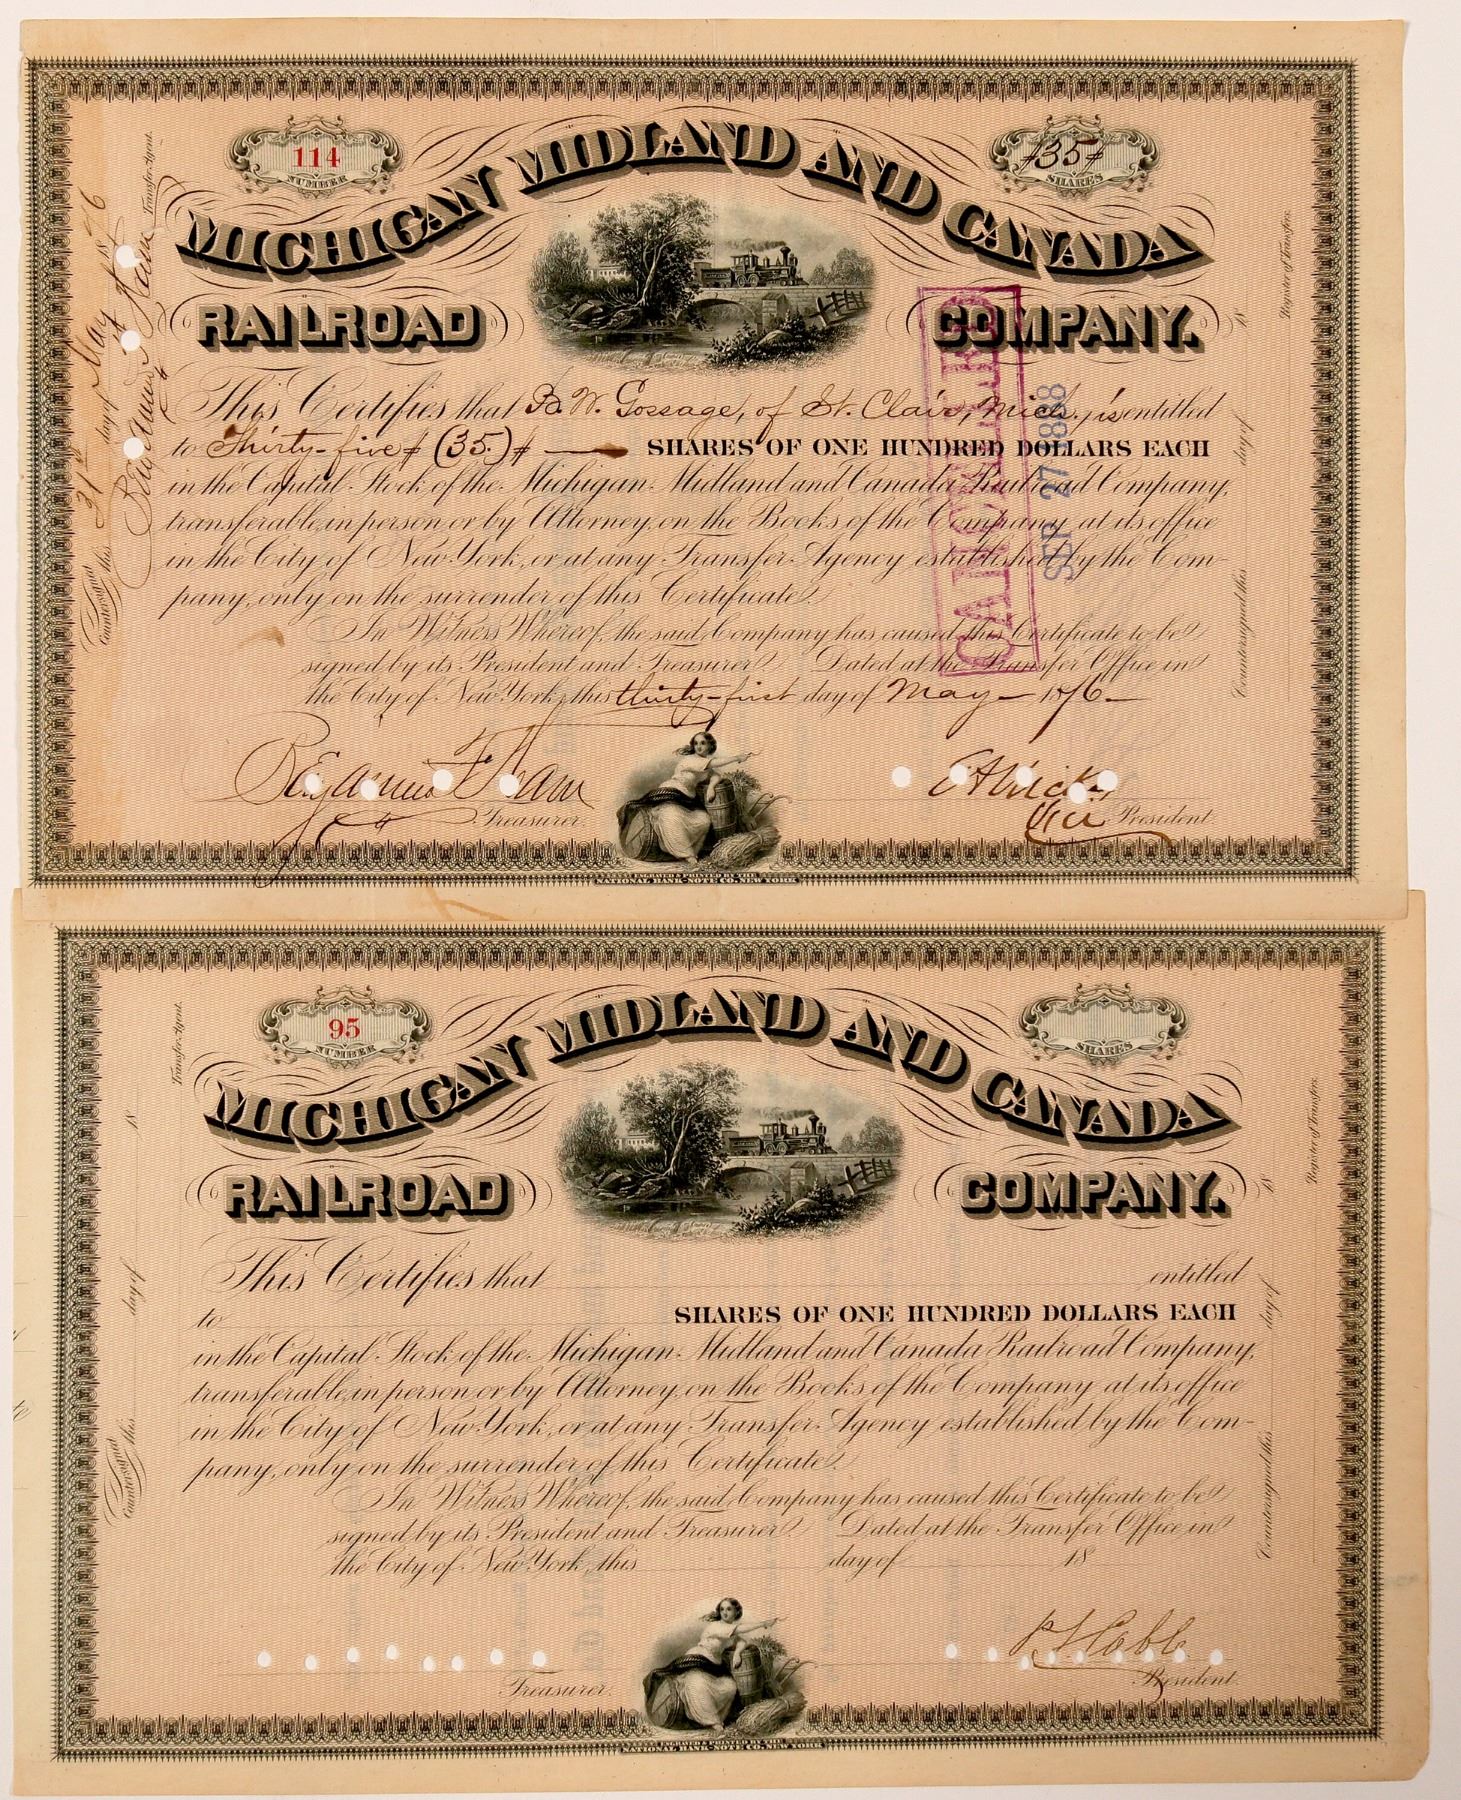 114
NUMBER
35
SHARES
MICHIGAN MIDLAND AND CANADA
RAILROAD COMPANY.
This Certifies that B. W. Gossage, of St. Clair, Mich., is entitled
to Thirty-five (35) SHARES OF ONE HUNDRED DOLLARS EACH
in the Capital Stock of the Michigan Midland and Canada Railroad Company,
transferable, in person or by Attorney, on the Books of the Company at its office
in the City of New York, or at any Transfer Agency established by the Com-
pany, only on the surrender of this Certificate.
In Witness Whereof, the said Company has caused this Certificate to be
signed by its President and Treasurer. Dated at the Transfer Office in
the City of New York, this thirty-first day of May 1876
Treasurer.
Vice President.
NATIONAL BANK NOTE CO. NEW YORK
Countersigned this 31st day of May 1876
Transfer Agent.
Countersigned this day of 18
Register of Transfers.
CANCELLED
SEP 27 1888
95
NUMBER
SHARES
MICHIGAN MIDLAND AND CANADA
RAILROAD COMPANY.
This Certifies that entitled
to SHARES OF ONE HUNDRED DOLLARS EACH
in the Capital Stock of the Michigan Midland and Canada Railroad Company,
transferable, in person or by Attorney, on the Books of the Company at its office
in the City of New York, or at any Transfer Agency established by the Com-
pany, only on the surrender of this Certificate.
In Witness Whereof, the said Company has caused this Certificate to be
signed by its President and Treasurer. Dated at the Transfer Office in
the City of New York, this day of 18
Treasurer.
Cobb
President.
NATIONAL BANK NOTE CO. NEW YORK
Countersigned this day of 18
Transfer Agent.
Countersigned this day of 18
Register of Transfers.